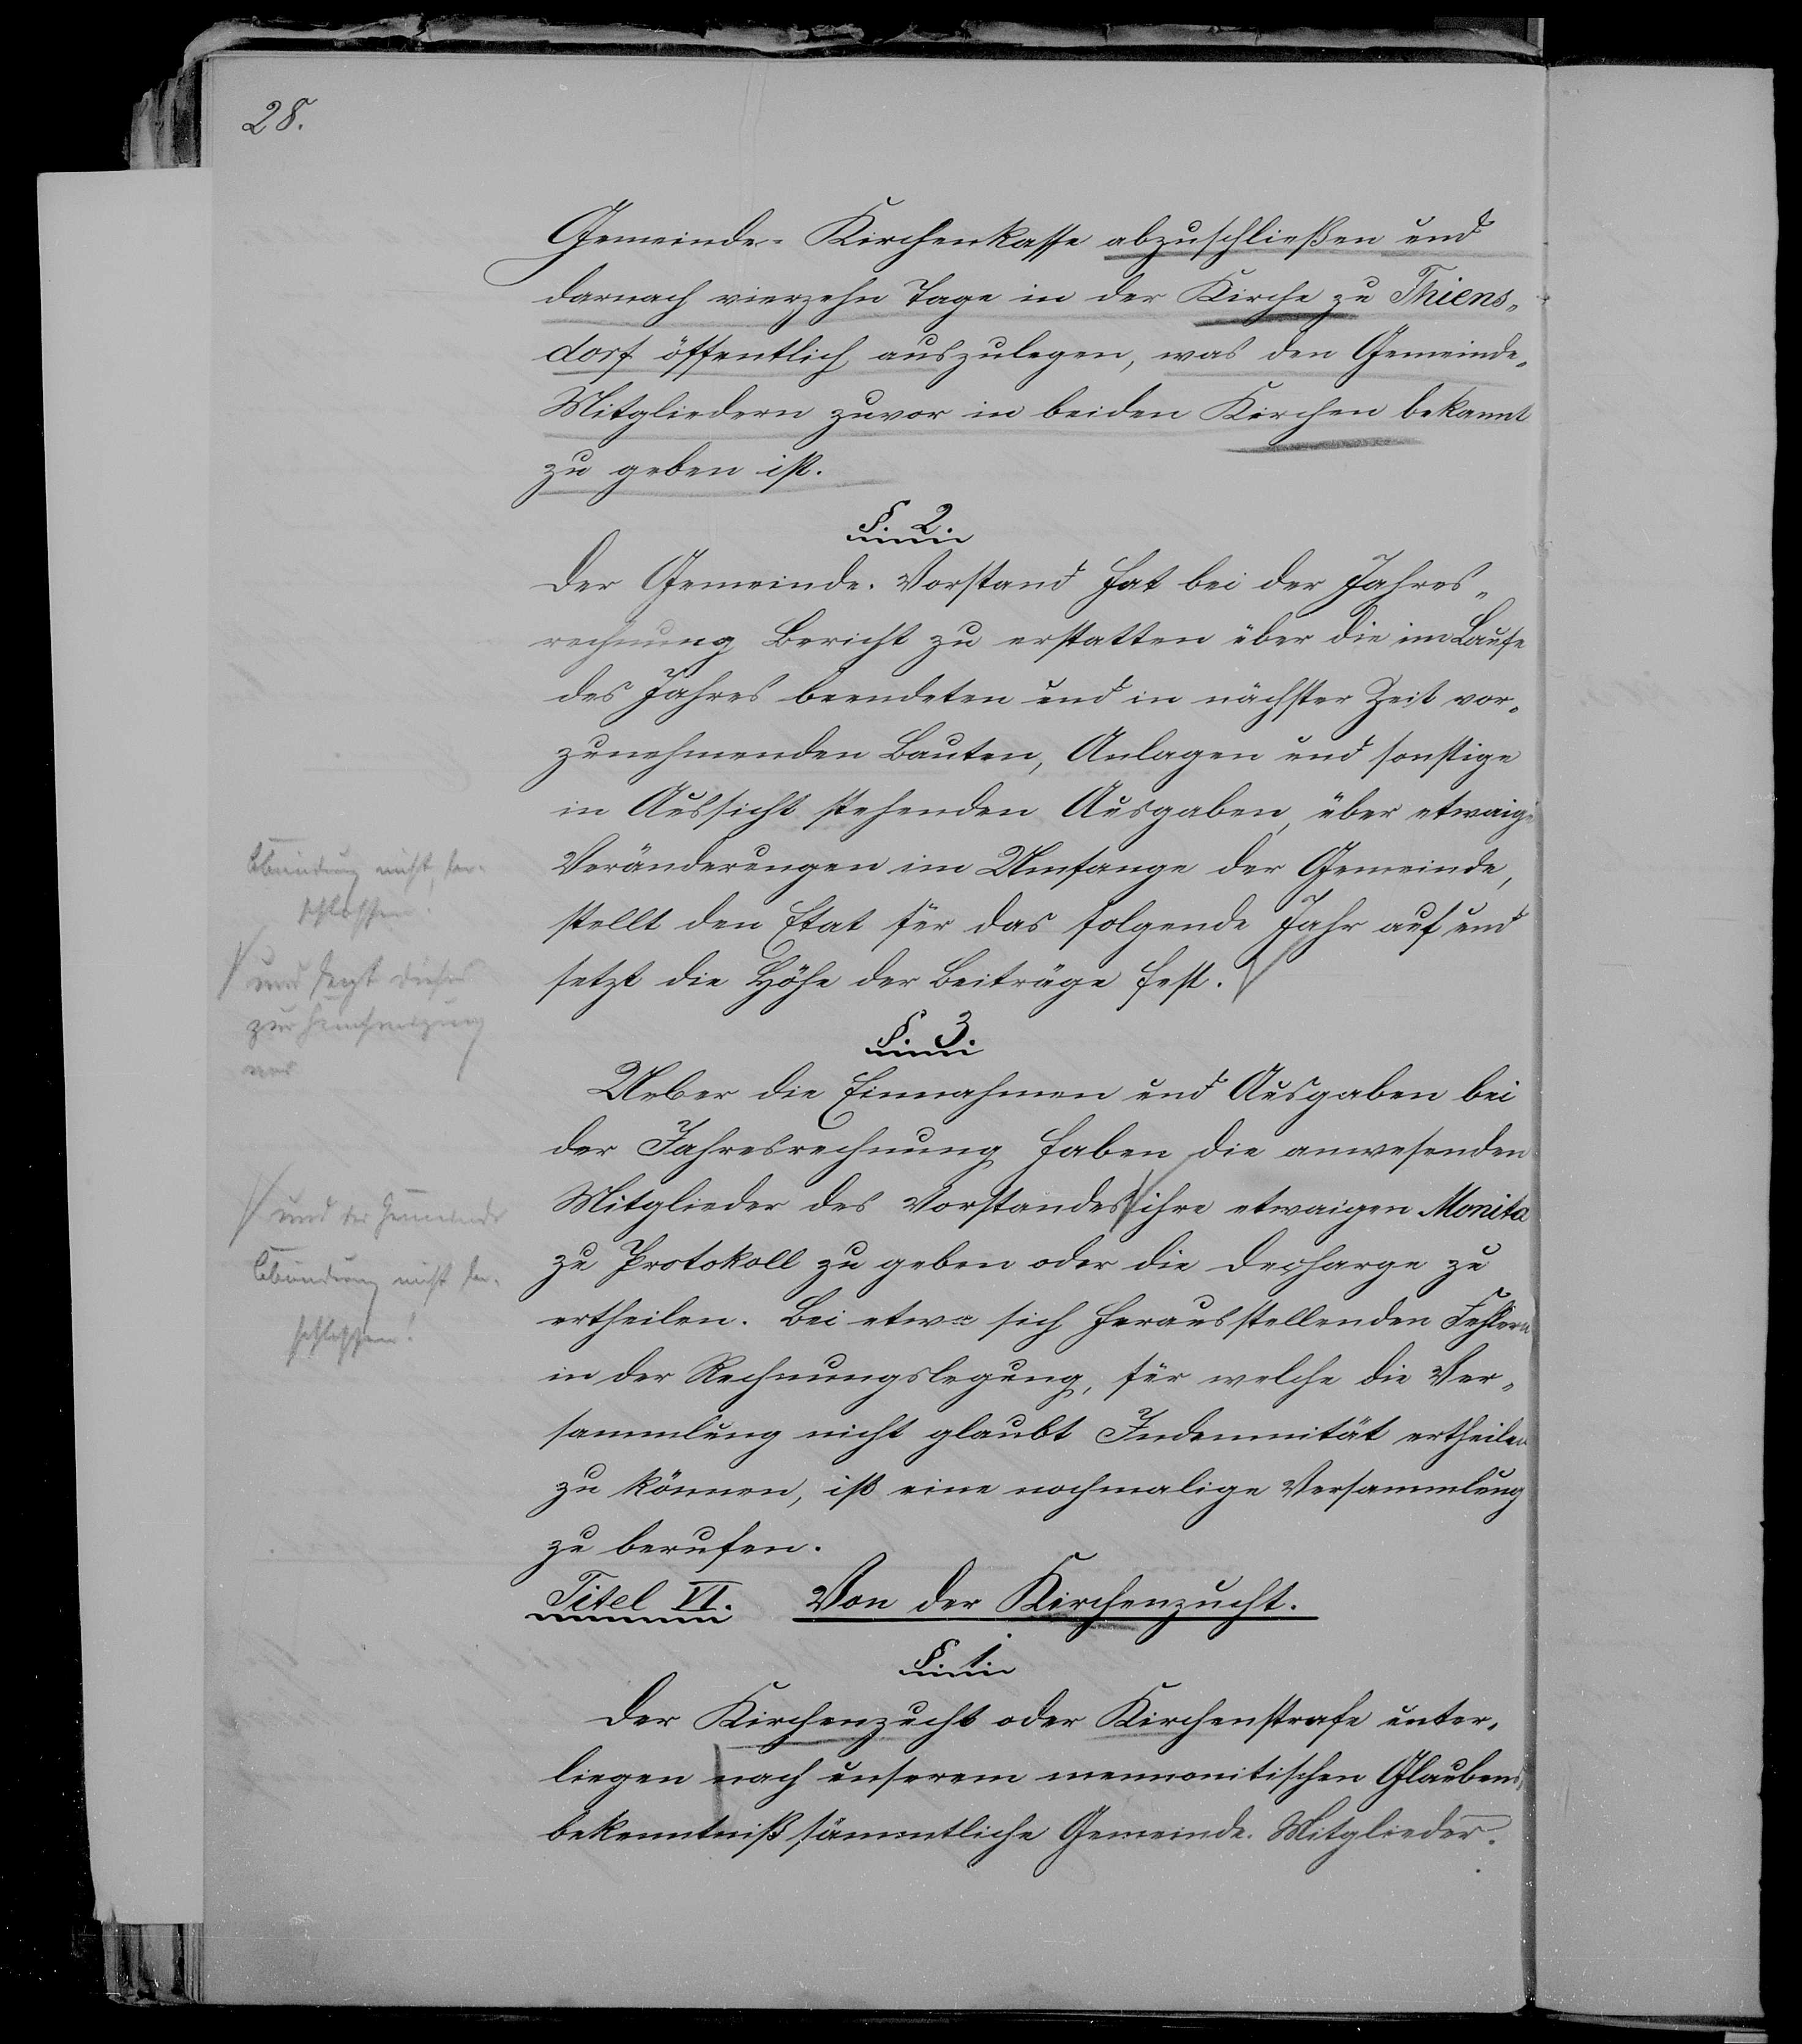 28.
Gemeinde-Kirchenkasse abzuschließen und
darnach vierzehn Tage in der Kirche zu Thiens-
dorf öffentlich auszulegen, was den Gemeinde-
Mitgliedern zuvor in beiden Kirchen bekannt
zu geben ist.
§. 2.
Der Gemeinde-Vorstand hat bei der Jahres-
rechnung Bericht zu erstatten über die im Laufe
des Jahres beendeten und in nächster Zeit vor-
zunehmenden Bauten, Anlagen und sonstige
in Aussicht stehenden Ausgaben, über etwaige
Veränderungen im Umfange der Gemeinde,
stellt den Etat für das folgende Jahr auf und
setzt die Höhe der Beiträge fest.
Abänderung nicht be-
schlossen.
und legt dieses
zur Genehmigung
vor
§. 3.
Ueber die Einnahmen und Ausgaben bei
der Jahresrechnung haben die anwesenden
Mitglieder des Vorstandes ihre etwaigen Monita
zu Protokoll zu geben oder die Decharge zu
ertheilen. Bei etwa sich herausstellenden Fehlern
in der Rechnungslegung, für welche die Ver-
sammlung nicht glaubt Indemnität ertheilen
zu können, ist eine nochmalige Versammlung
zu berufen.
und der Gemeinde
Abänderung nicht be-
schlossen!
Titel VI. Von der Kirchenzucht.
§. 1.
Der Kirchenzucht oder Kirchenstrafe unter-
liegen nach unserem mennonitischen Glaubens-
bekenntniß sämmtliche Gemeinde-Mitglieder.